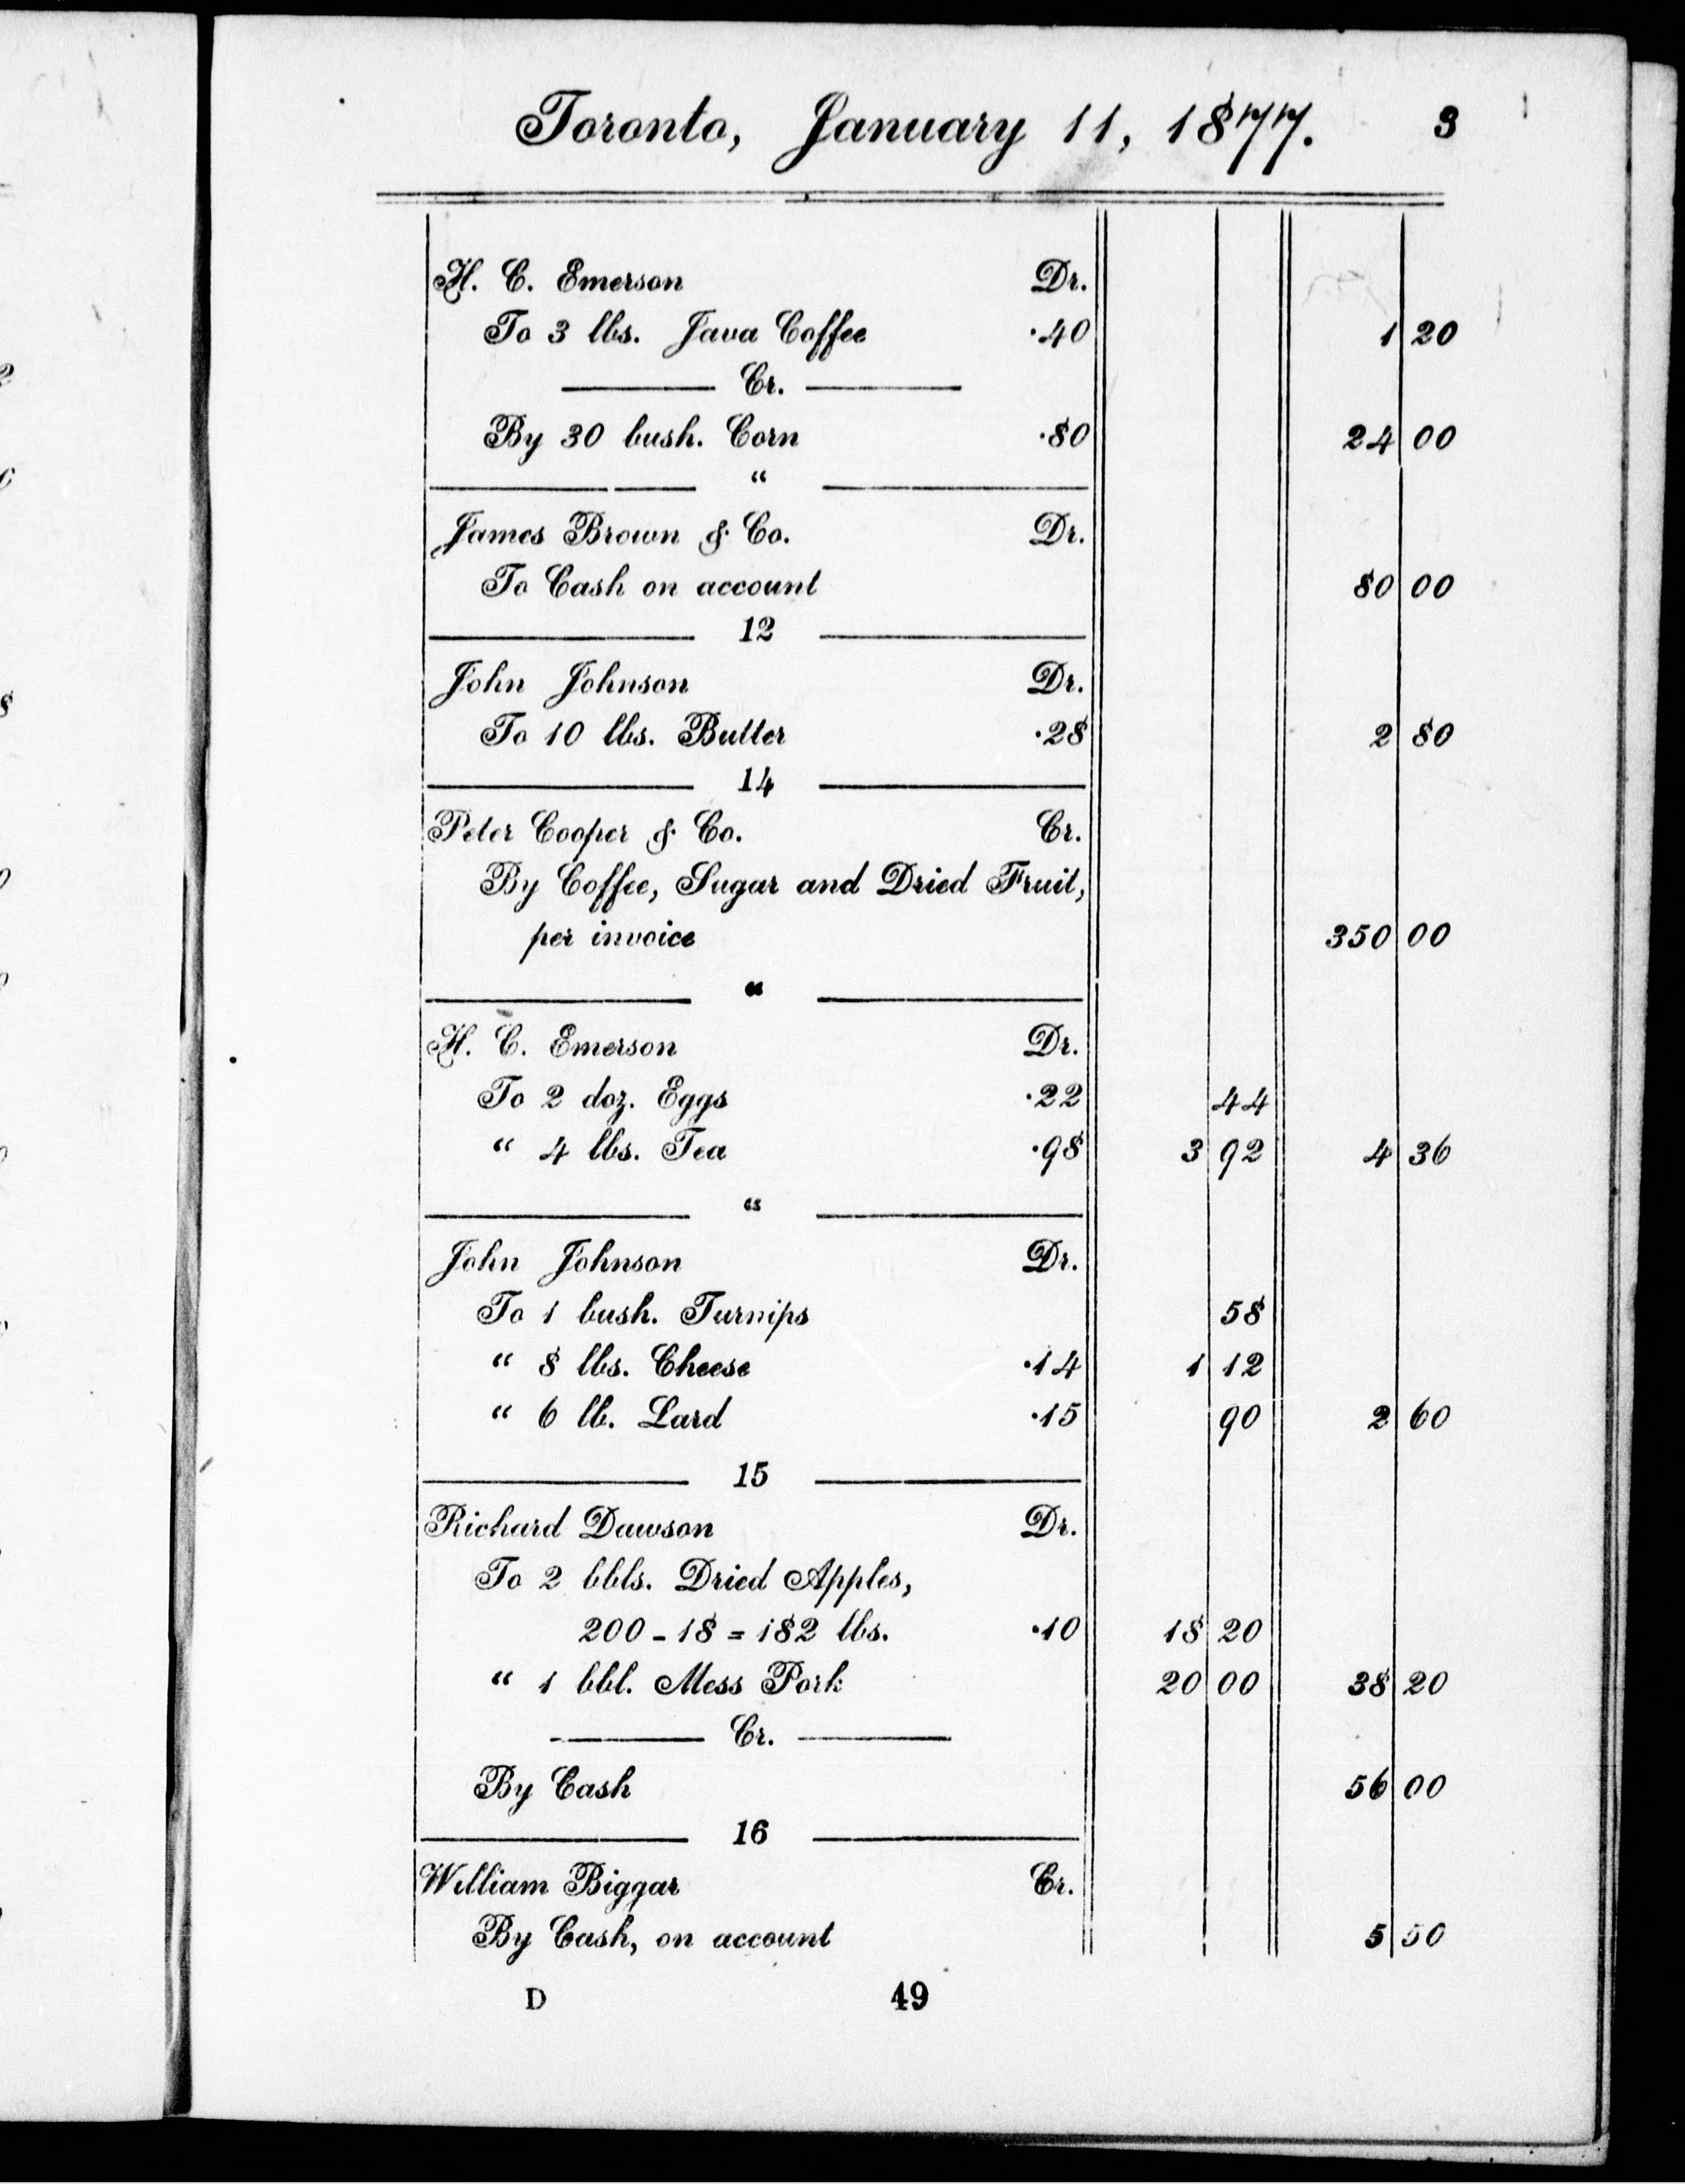 Toronto, January 11, 1877. 3
H. C. Emerson Dr.
To 3 lbs. Java Coffee ·40 1 20
Cr.
By 30 bush. Corn ·80 24 00
"
James Brown & Co. Dr.
To Cash on account 80 00
12
John Johnson Dr.
To 10 lbs. Butter ·28 2 80
14
Peter Cooper & Co. Cr.
By Coffee, Sugar and Dried Fruit,
per invoice 350 00
"
H. C. Emerson Dr.
To 2 doz. Eggs ·22 44
" 4 lbs. Tea ·98 3 92 4 36
"
John Johnson Dr.
To 1 bush. Turnips 58
" 8 lbs. Cheese ·14 1 12
" 6 lb. Lard ·15 90 2 60
15
Richard Dawson Dr.
To 2 bbls. Dried Apples,
200 - 18 = 182 lbs. ·10 18 20
" 1 bbl. Mess Pork 20 00 38 20
Cr.
By Cash 56 00
16
William Biggar Cr.
By Cash, on account 5 50
D 49